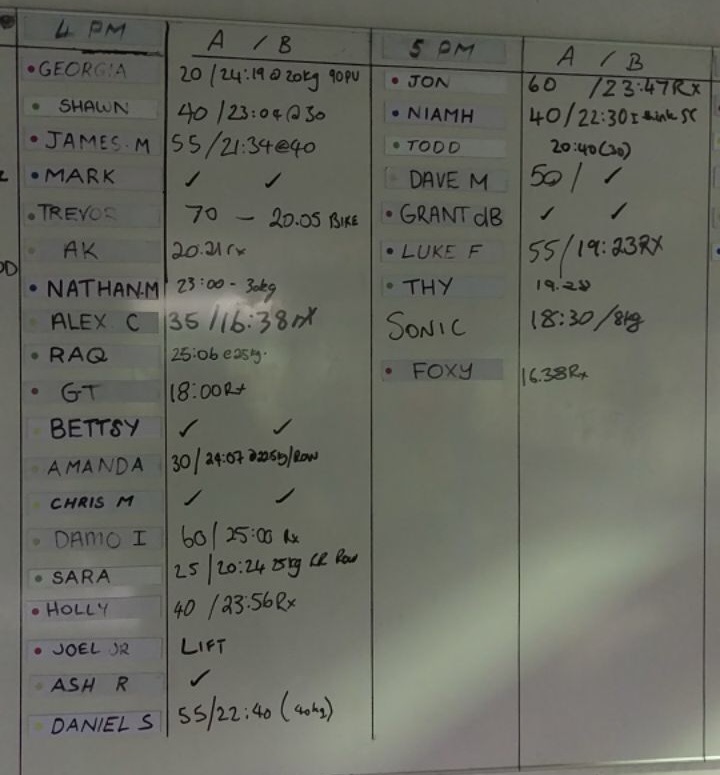 4 PM
A / B
GEORGIA 20/24:19@20kg 90PU
SHAWN 40/23:04@30
JAMES.M 55/21:34@40
MARK ✓ ✓
TREVOR 70 - 20.05 BIKE
AK 20.21rx
NATHAN.M 23:00 - 30kg
ALEX C 35/16:38rX
RAQ 25:06@25kg.
GT 18:00Rx
BETTSY ✓ ✓
AMANDA 30/24:07 /Row
CHRIS M ✓ ✓
DAMO I 60/25:00 Rx
SARA 25/20:24 25kg Row
HOLLY 40/23:56Rx
JOEL JR LIFT
ASH R ✓
DANIEL S 55/22:40 (40kg)
5 PM
A / B
JON 60 /23:47Rx
NIAMH 40/22:30 I think SC
TODD 20:40(30)
DAVE M 50/ ✓
GRANT dB ✓ ✓
LUKE F 55/19:23RX
THY 19.28
SONIC 18:30/8kg
FOXY 16.38Rx
OD